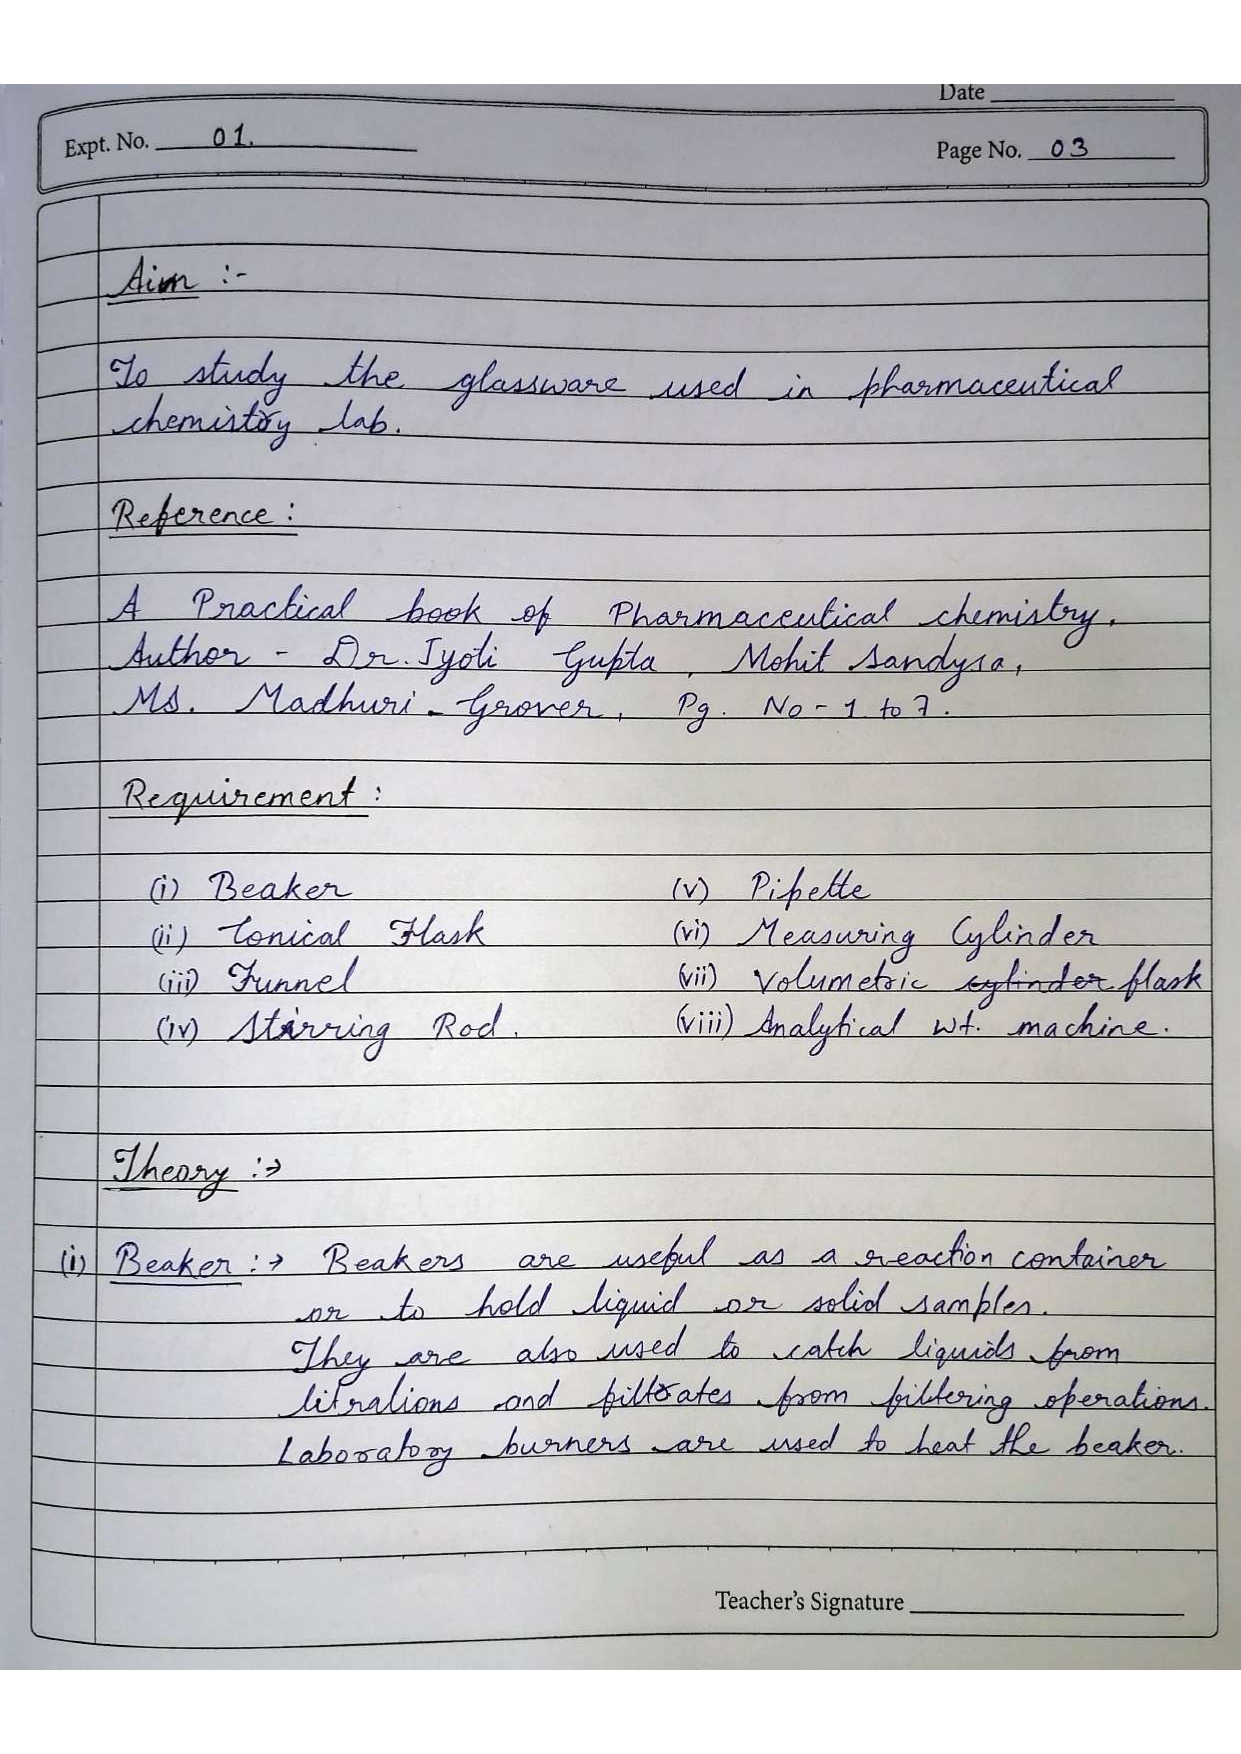 Date
Expt. No. 01.
Page No. 03
Aim :-
To study the glassware used in pharmaceutical
chemistry lab.
Reference :
A Practical book of Pharmaceutical chemistry.
Author - Dr. Jyoti Gupta, Mohit Sandysa,
Ms. Madhuri - Grover, Pg. No - 1 to 7.
Requirement :
(i) Beaker
(ii) Conical Flask
(iii) Funnel
(iv) Stirring Rod.
(v) Pipette
(vi) Measuring Cylinder
(vii) Volumetric cylinder flask
(viii) Analytical wt. machine.
Theory :→
(i) Beaker :→ Beakers are useful as a reaction container
or to hold liquid or solid samples.
They are also used to catch liquids from
titrations and filtrates from filtering operations.
Laboratory burners are used to heat the beaker.
Teacher's Signature